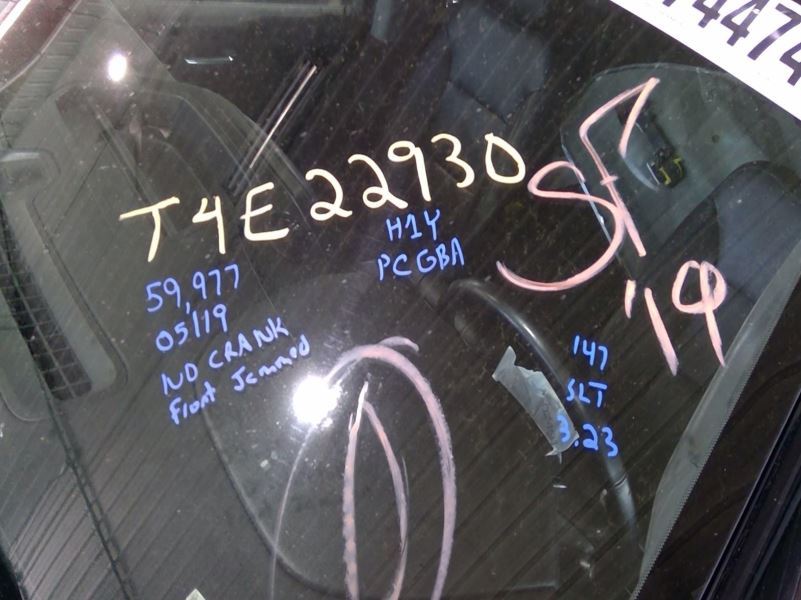 74474
T4E22930
SF
'19
H1Y
PCGBA
59,977
05/19
NO CRANK
Front Jammed
147
SLT
3.23